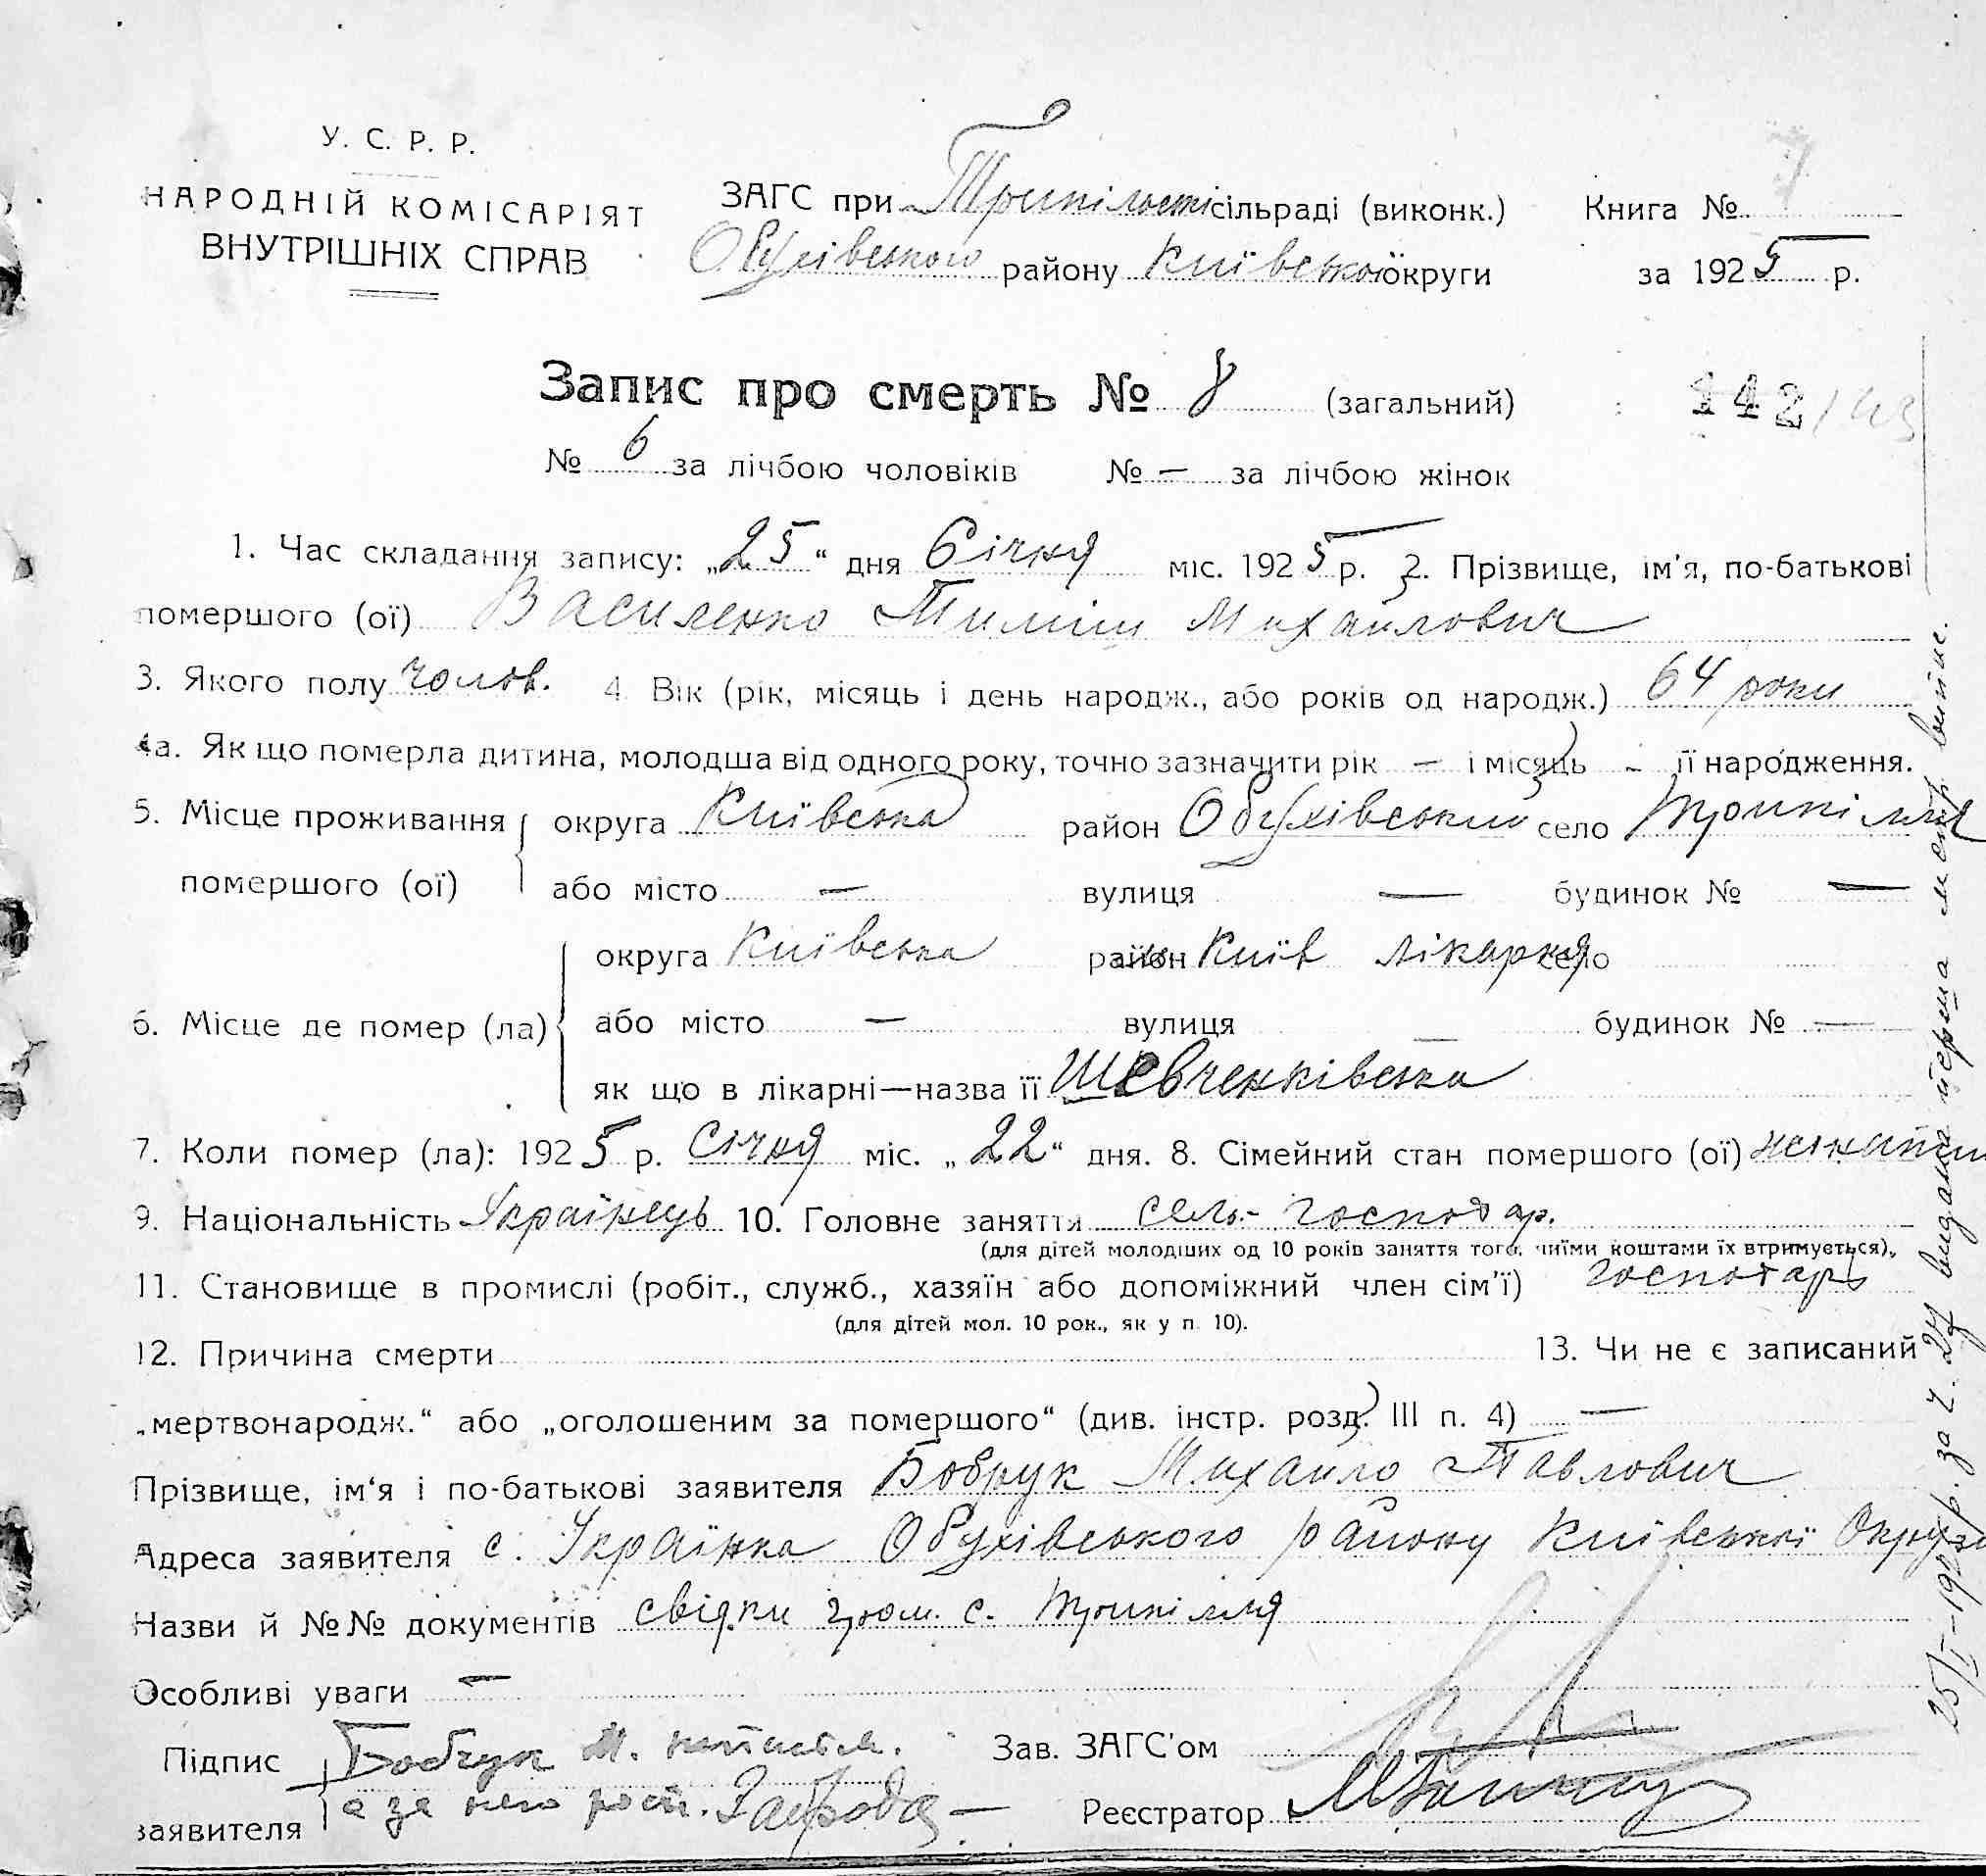 У. С. Р. Р.
НАРОДНІЙ КОМІСАРІЯТ
ВНУТРІШНІХ СПРАВ
ЗАГС при Трипільскі сільраді (виконк.)
Обухівського району Київської округи
Книга №
за 1925 р.
Запис про смерть № 8 (загальний)
142/143
№ 6 за лічбою чоловіків № — за лічбою жінок
1. Час складання запису: „25“ дня Січня міс. 1925 р. 2. Прізвище, ім'я, по-батькові
помершого (ої) Василенко Тиміш Михайлович
3. Якого полу чолов. 4. Вік (рік, місяць і день народж., або років од народж.) 64 роки
4а. Як що померла дитина, молодша від одного року, точно зазначити рік — і місяць - її народження.
5. Місце проживання помершого (ої) округа Київська район Обухівський село Трипілля
або місто — вулиця — будинок № —
6. Місце де помер (ла) округа Київська район Київ лікарня село
або місто — вулиця — будинок № —
як що в лікарні—назва її Шевченківська
7. Коли помер (ла): 1925 р. Січня міс. „22“ дня. 8. Сімейний стан помершого (ої)
9. Національність Українець 10. Головне заняття сель.- господар.
(для дітей молодших од 10 років заняття того, чиїми коштами їх втримується),
11. Становище в промислі (робіт., служб., хазяїн або допоміжний член сім'ї) господарь
(для дітей мол. 10 рок., як у п. 10).
12. Причина смерти 13. Чи не є записаний
„мертвонародж.“ або „оголошеним за помершого“ (див. інстр. розд. III п. 4) —
Прізвище, ім'я і по-батькові заявителя Бобрук Михайло Павлович
Адреса заявителя с. Українка Обухівського району Київської Округи
Назви й №№ документів свідки гром. с. Трипілля
Особливі уваги —
Підпис заявителя Бобрук М.
а за него
Зав. ЗАГС'ом
Реєстратор
25/I-1925 р. за ч. 27 видана перша метр. випис.